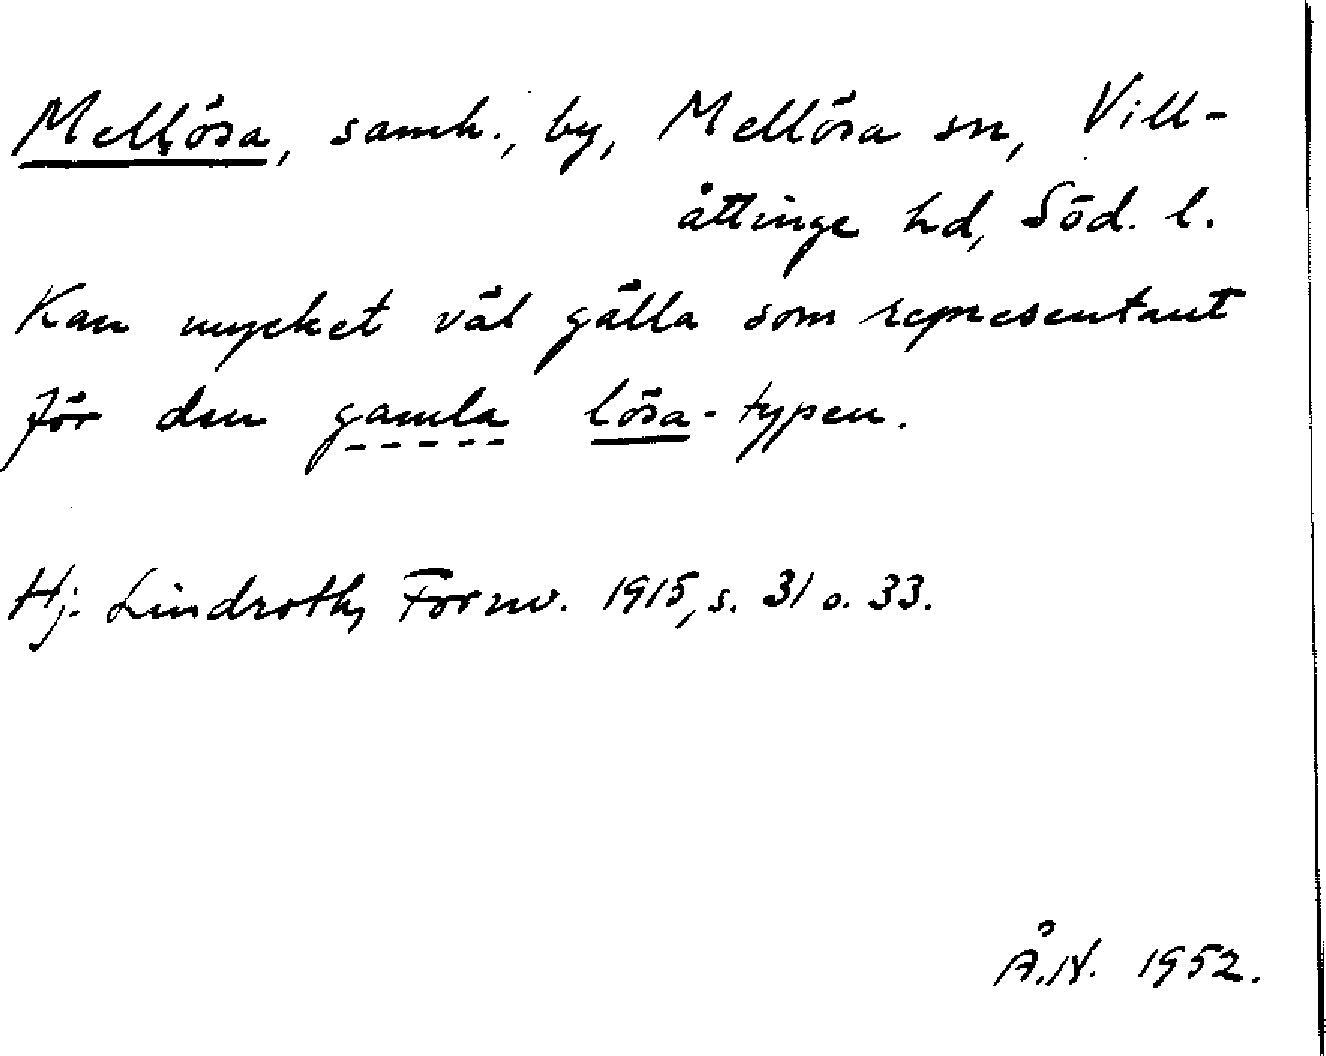 Mellösa, samh., by, Mellösa sn, Vill-
åttinge hd, Söd. l.
Kan mycket väl gälla som representant
för den gamla lösa-typen.
Hj. Lindroth, Fornv. 1915, s. 31 o. 33.
Å.N. 1952.